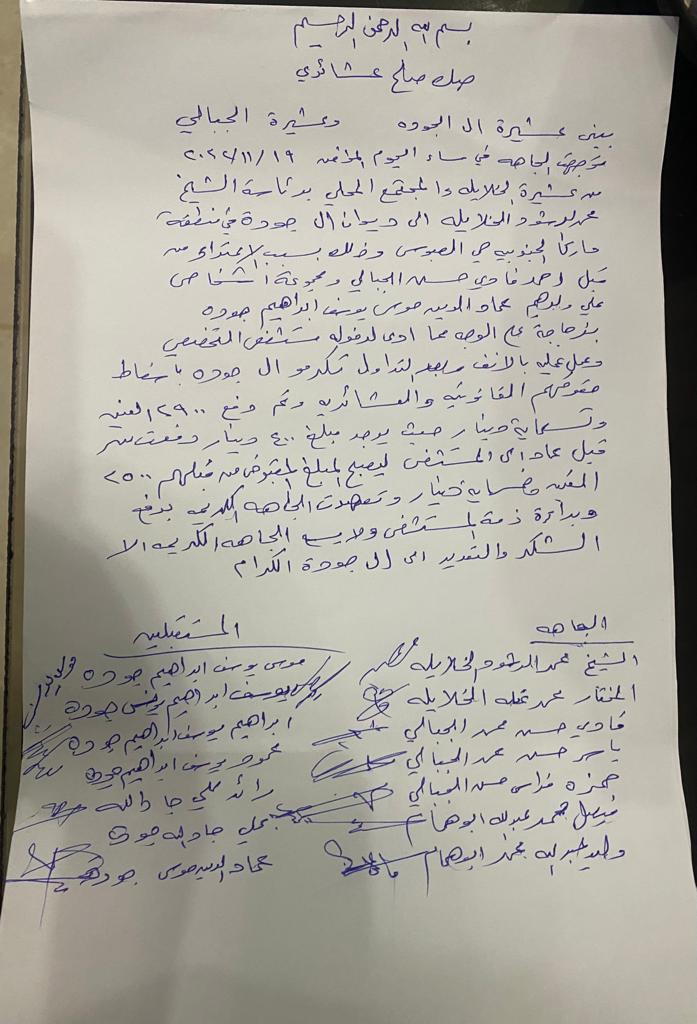 بسم الله الرحمن الرحيم
صك صلح عشائري
بين عشيرة ال الجوده وعشيرة الجبالي
توجهت الجاهه في مساء اليوم الموافق ٢٠٢٢/١١/١٩
من عشيرة الخلايله والمجتمع المحلي برئاسة الشيخ
محمد الرشود الخلايله الى ديوان ال جودة في منطقة
ماركا الجنوبيه حي العبوس وذلك بسبب الاعتداء من
قبل احمد فادي حسن الجبالي ومجموعة اشخاص
على ولدهم عماد الدين موسى يوسف ابراهيم جوده
بزجاجة على الوجه مما ادى لدخوله مستشفى التخصصي
وعمل عمليه بالانف وبعد التداول تكرمو ال جوده باسقاط
حقوقهم القانونيه والعشائريه وتم دفع ٢٩٠٠ الفين
وتسعماية دينار حيث يوجد مبلغ ٤٠٠ دينار دفعت من
قبل الى المستشفى ليصبح المبلغ المقبوض من قبلهم ٢٥٠٠
الفين وخمسماية دينار وتعهدت الجاهه الكريمه بدفع
وبراءة ذمة المستشفى ولا يسع الجاهه الكريمه الا
الشكر والتقدير الى ال جودة الكرام
الجاهه
الشيخ محمد الرشود الخلايله
المختار محمد الخلايله
فادي حسن محمد الجبالي
ياسر حسن محمد الجبالي
حمزه فراس حسن الجبالي
فيصل محمد عبدالله ابوهمام
وليد عبدالله محمد ابوهمام
المستقبلين
موسى يوسف ابراهيم جوده
يوسف ابراهيم يونس جودة
ابراهيم يوسف ابراهيم جودة
محمود يوسف ابراهيم جوده
رائد علي جادالله
علي جادالله جودة
عماد الدين موسى جودة